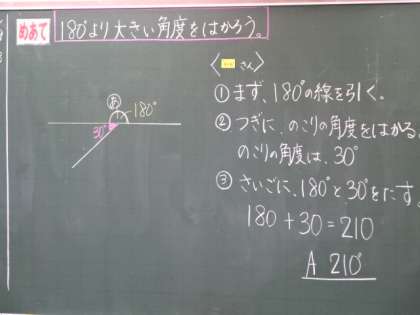 めあて
180°より大きい角度をはかろう。
〈 さん〉
あ
180°
30°
①まず、180°の線を引く。
②つぎに、のこりの角度をはかる。
のこりの角度は、30°
③さいごに、180°と30°をたす。
180+30=210
A 210°